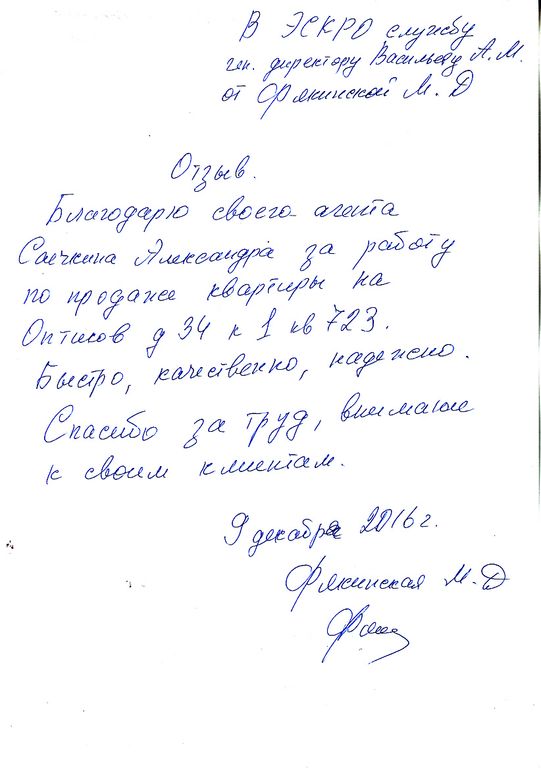 В ЭСКРО службу
ген. директору Васильеву А.М.
от Фякинской М.Д
Отзыв.
Благодарю своего агента
Саечкина Александра за работу
по продаже квартиры на
Оптиков д 34 к 1 кв 723.
Быстро, качественно, надежно.
Спасибо за труд, внимание
к своим клиентам.
9 декабря 2016 г.
Фякинская М.Д